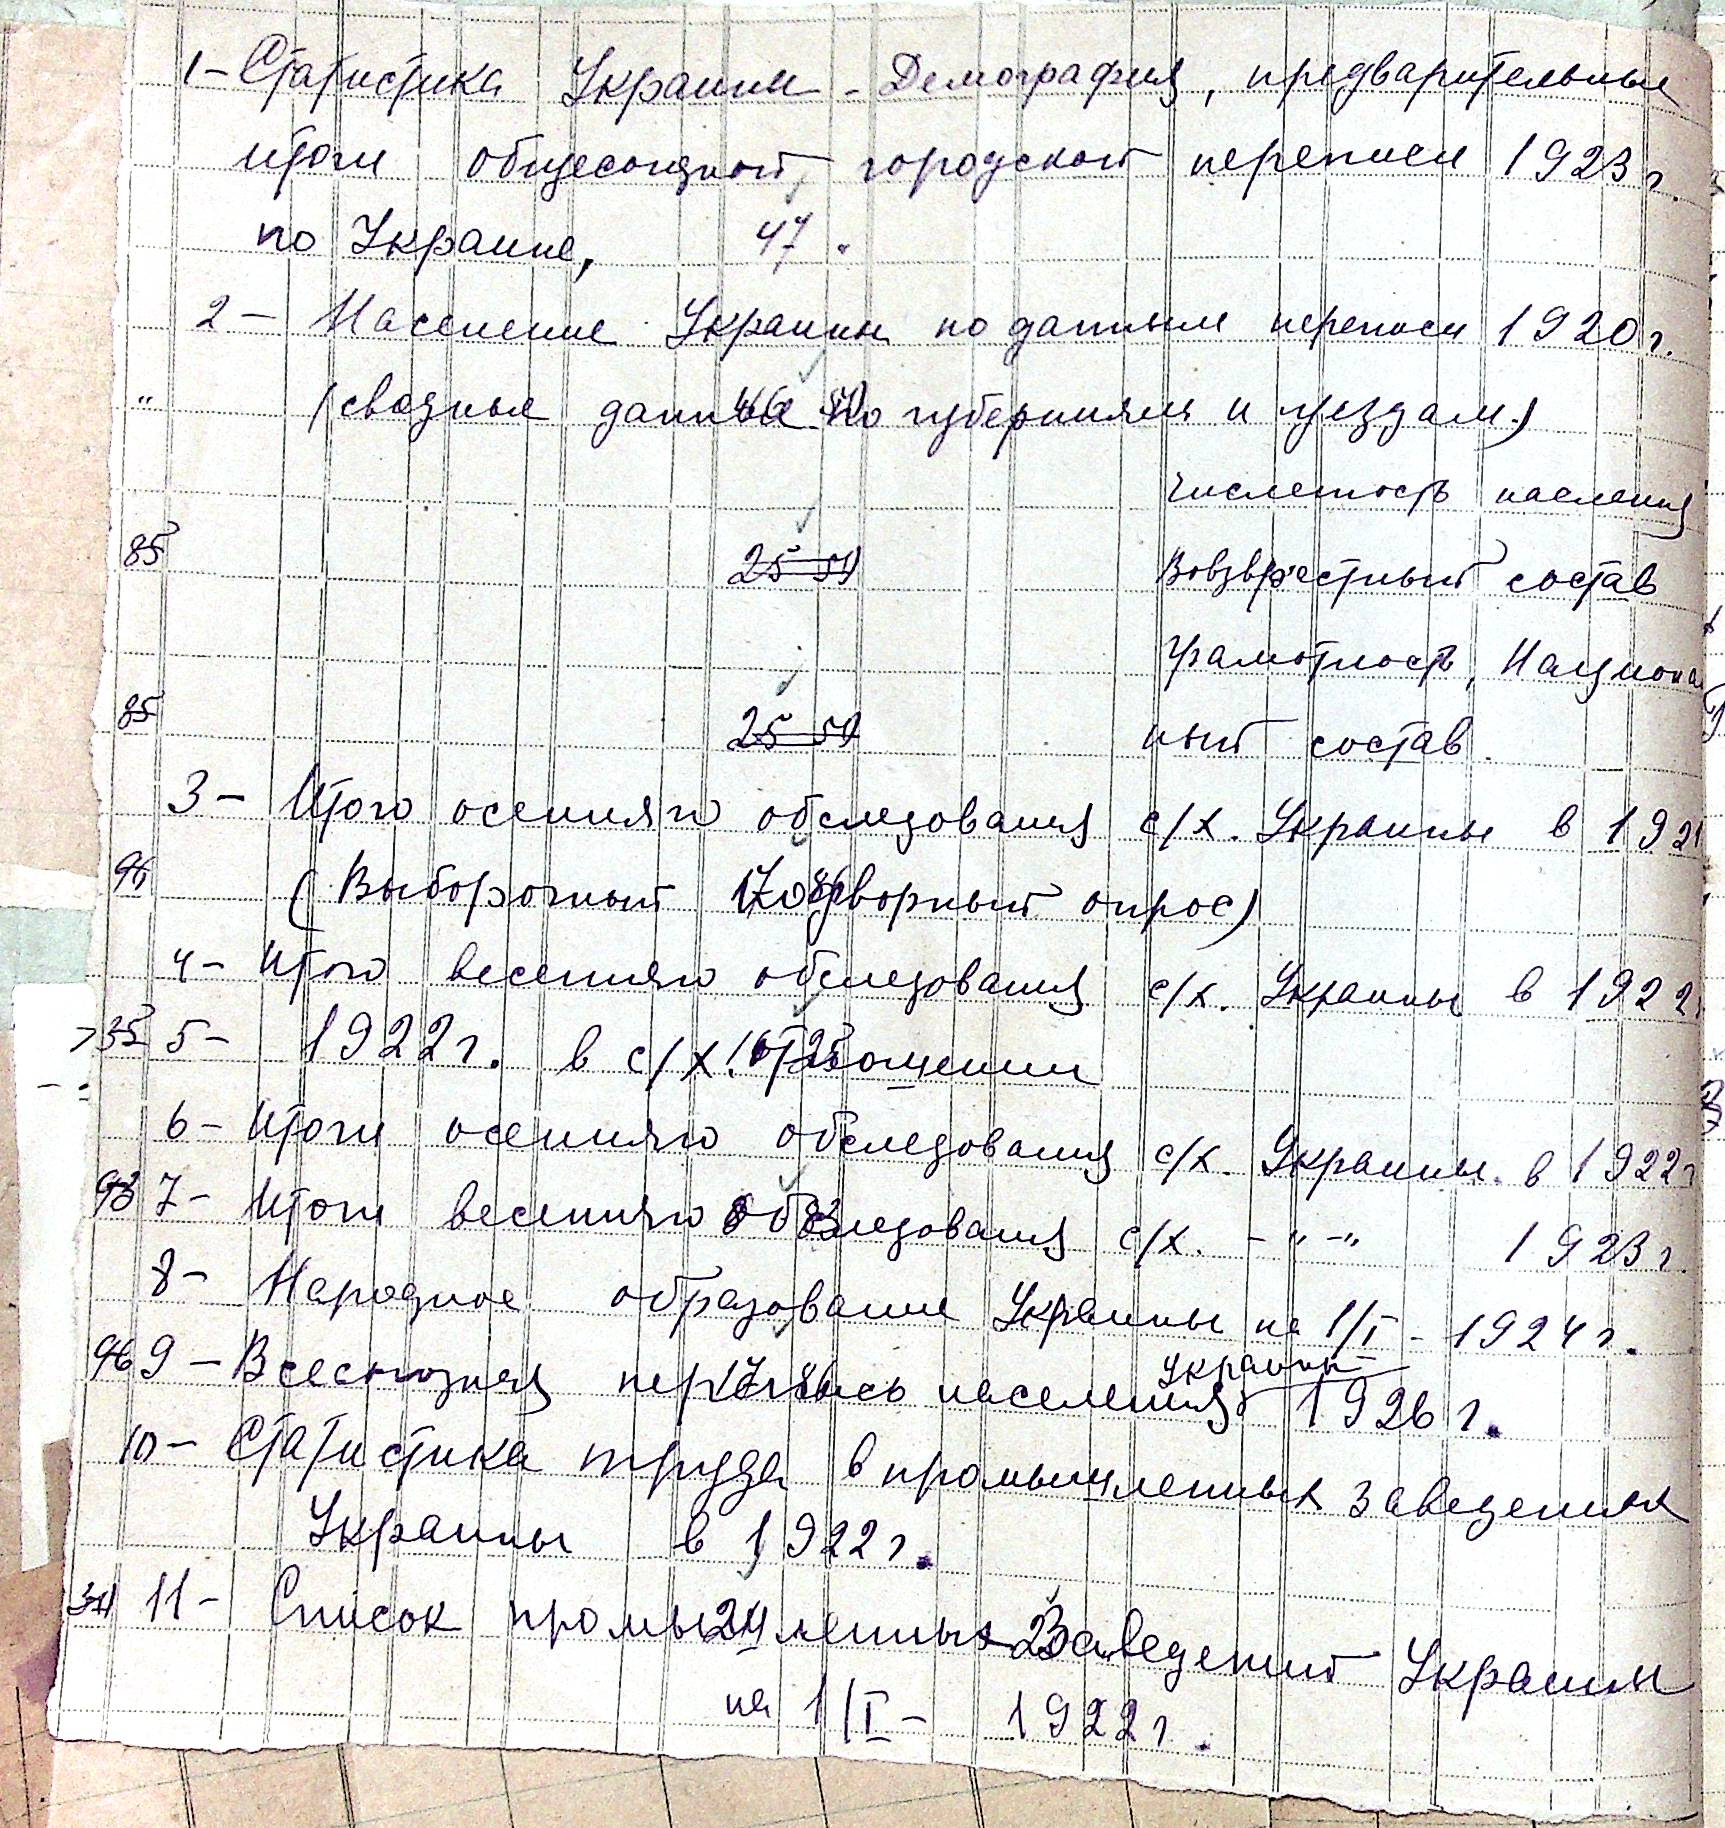 1 – Статистика Украины – Демография, предварительные
итоги общесоюзной городской переписи 1923 г.
по Украине, 47.
2 – Население Украины по данным переписи 1920 г.
" (сводные данные по губерниям и уездам)
Численность населения
85 25 50 Возврастный состав
Грамотность, Национал
85 25 50 ный состав.
3 – Итого осеннего обследования с/х. Украины в 192
96 (Выборочный подворный опрос)
4 – Итого весеннего обследования с/х. Украины в 1922
35 5 – 1922 г. в с/х. отношении
6 – Итоги осеннего обследования с/х. Украины в 1922 г
93 7 – Итоги весеннего обследования с/х. – " – " 1923 г.
8 – Народное образование Украины на 1/I – 1924 г.
Украины
96 9 – Всесоюзная перепись населения 1926 г.
10 – Статистика труда в промышленных заведениях
Украины в 1922 г.
11 – Список промышленных заведений Украины
на 1/I – 1922 г.